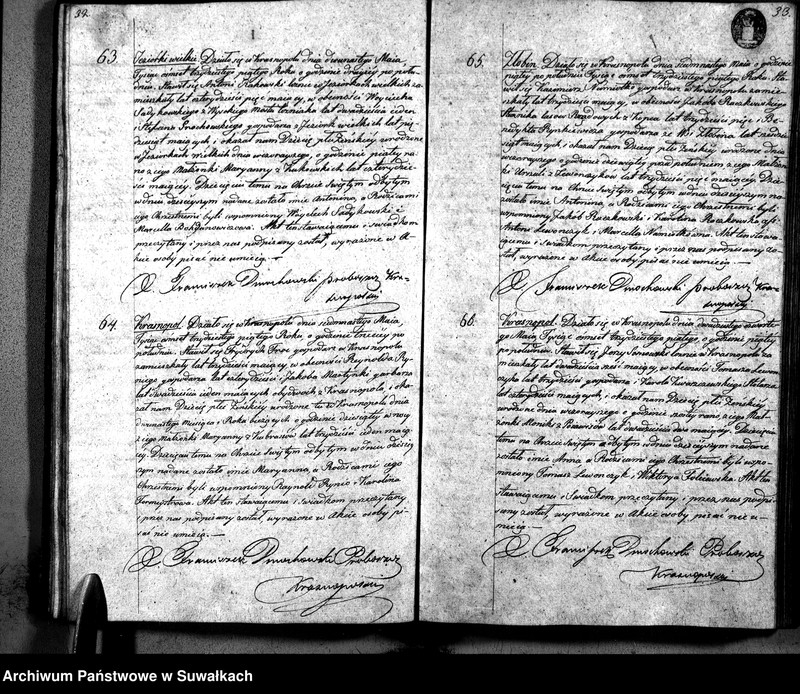 32.
63
Jeziorki wielkie Działo się w Krasnopolu dnia dwunastego Maia
Tysiąc ośmset trzydziestego piątego Roku o godzinie drugiey po połu-
dniu. Stawił się Antoni
mieszkały lat czterdzieści pięć maiący, w obecności Woyciecha
Sadykowskiego z lat dwadzieścia ieden
i Stefana Grochowskiego gospodarza z Jeziork wielkich lat pię-
dziesiąt maiących i okazał nam Dziecię płci Żeńskiey urodzone
w Jeziorkach wielkich dnia wczorayszego, o godzinie piątey ra-
no z iego Małżonki Maryanny z lat czterdzie-
ści maiącey. Dziecięciu temu na Chrzcie Swiętym odbytym
w dniu dzisieyszym nadane zostało imie Antonina, a Rodzicami
iego Chrzestnemi byli wspomniony Woyciech Sadykowski i
Marcella Bohdanowiczowa. Akt ten stawaiącemu i świadkom
przeczytany i przez nas podpisany został, wyrażone w A-
kcie osoby pisać nie umieią.
X Franciszek Dmochowski proboszcz Kra-
snopolski
64.
Krasnopol. Działo się w Krasnopolu dnia siedmnastego Maia,
Tysiąc ośmset trzydziestego piątego Roku o godzinie trzeciey po
południu. Stawił się Fryderyk Froc gospodarz w Krasnopolu
zamieszkały lat trzydzieści maiący, w obecności Reynolda Ry-
niego gospodarza lat czterdzieści i Jakoba Martynki garbarza
lat dwadzieścia ieden maiących obydwóch z Krasnopola, i oka-
zał nam Dziecię płci Żeńskiey urodzone tu w Krasnopolu dnia
dwunastego miesiąca i Roku bieżących o godzinie dziesiątey w nocy
z iego Małżonki Maryanny z lat trzydzieści ieden maią-
cey. Dziecięciu temu na Chrzcie Swiętym odbytym w dniu dzisiey-
szym nadane zostało imie Maryanna, a Rodzicami iego
Chrzestnemi byli wspomniony Raynold Rynio i Karolina
Akt ten stawaiącemu i świadkom przeczytany
i przez nas podpisany został, wyrażone w Akcie osoby pi-
sać nie umieią.
X Franciszek Dmochowski Proboszcz
Krasnopolski
33.
65.
Żłobin. Działo się w Krasnopolu dnia siedmnastego Maia o godzinie
piątey po południu Tysiąc ośmset trzydziestego piątego Roku. Sta-
wił się Kazimierz gospodarz w Krasnopolu zamie-
szkały lat trzydzieści maiący, w obecności Jakoba Raczkowskiego
Strażnika lasów Rządowych z lat trzydzieści pięć i Be-
nedykta Rynkiewicza gospodarza ze Wsi Żłobina lat
maiących i okazał nam Dziecię płci Żeńskiey urodzone dnia
wczorayszego o godzinie dziewiątey przed południem z iego Małżon-
ki Urszuli z lat trzydzieści pięć maiącey. Dzie-
cięciu temu na Chrzcie Swiętym odbytym w dniu dzisieyszym na-
zostało imie Antonina, a Rodzicami iego Chrzestnemi byli
wspomniony Jakób Raczkowski i Karolina Raczkowska
Antoni Lewonczyk i Marcella Akt ten stawa-
iącemu i świadkom przeczytany i przez nas podpisany zo-
stał, wyrażone w Akcie osoby pisać nie umieią.
X Franciszek Dmochowski proboszcz Kra-
snopolski
66.
Krasnopol. Działo się w Krasnopolu dnia dwudziestego czwarte-
go Maia Tysiąc ośmset trzydziestego piątego, o godzinie piątey
po południu. Stawił się Jerzy w Krasnopolu za-
mieszkały lat dwadzieścia sześć maiący, w obecności Tomasza Lewon-
czyka lat trzydzieści gospodarza, i Karola Stolarza
lat czterdzieści maiących, i okazał nam Dziecię płci Żeńskiey
urodzone dnia wczorayszego o godzinie szóstey rano z iego Mał-
żonki Moniki z lat dwadzieścia dwa maiącey. Dziecięciu
temu na Chrzcie Swiętym odbytym w dniu dzisieyszym nadane
zostało imie Anna a Rodzicami iego Chrzestnemi byli wspo-
mniony Tomasz Lewonczyk i Wiktorya Akt ten
stawaiącemu i świadkom przeczytany i przez nas podpi-
sany został, wyrażone w Akcie osoby pisać nie u-
mieią.
X Franciszek Dmochowski Proboszcz
Krasnopolski
Archiwum Państwowe w Suwałkach